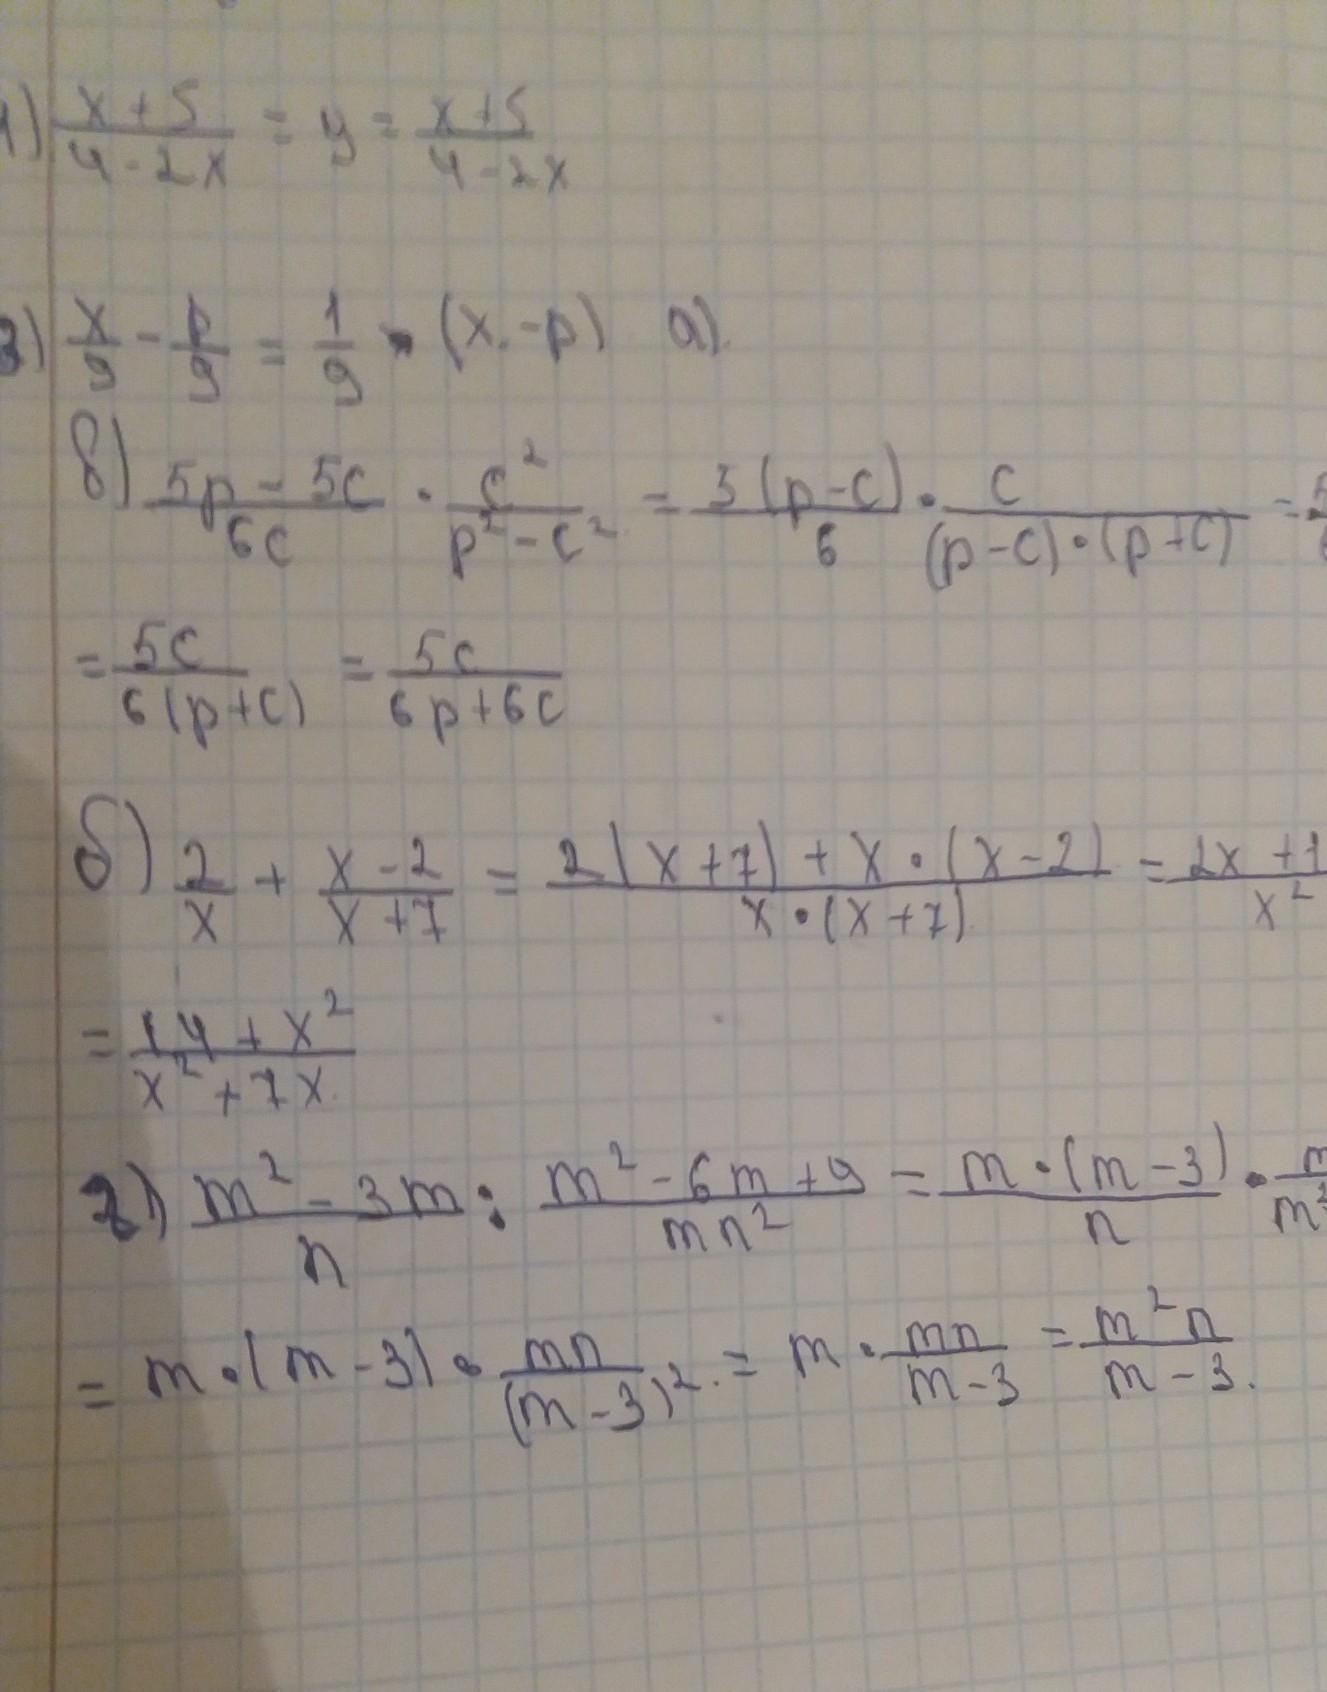 1) (x+5)/(4-2x) = y = (x+5)/(4-2x)
3) x/9 - p/9 = 1/9 • (x-p) а).
в) (5p-5c)/(6c) • c²/(p²-c²) = 3(p-c)/6 • c/((p-c)•(p+c)) =
= 5c/(6(p+c)) = 5c/(6p+6c)
б) 2/x + (x-2)/(x+7) = (2(x+7)+x•(x-2))/(x•(x+7)) = (2x+1/x²
= (14+x²)/(x²+7x)
г) (m²-3m)/n : (m²-6m+9)/(mn²) = m•(m-3)/n • m/m²
= m•(m-3) • mn/(m-3)² = m • mn/(m-3) = m²n/(m-3).